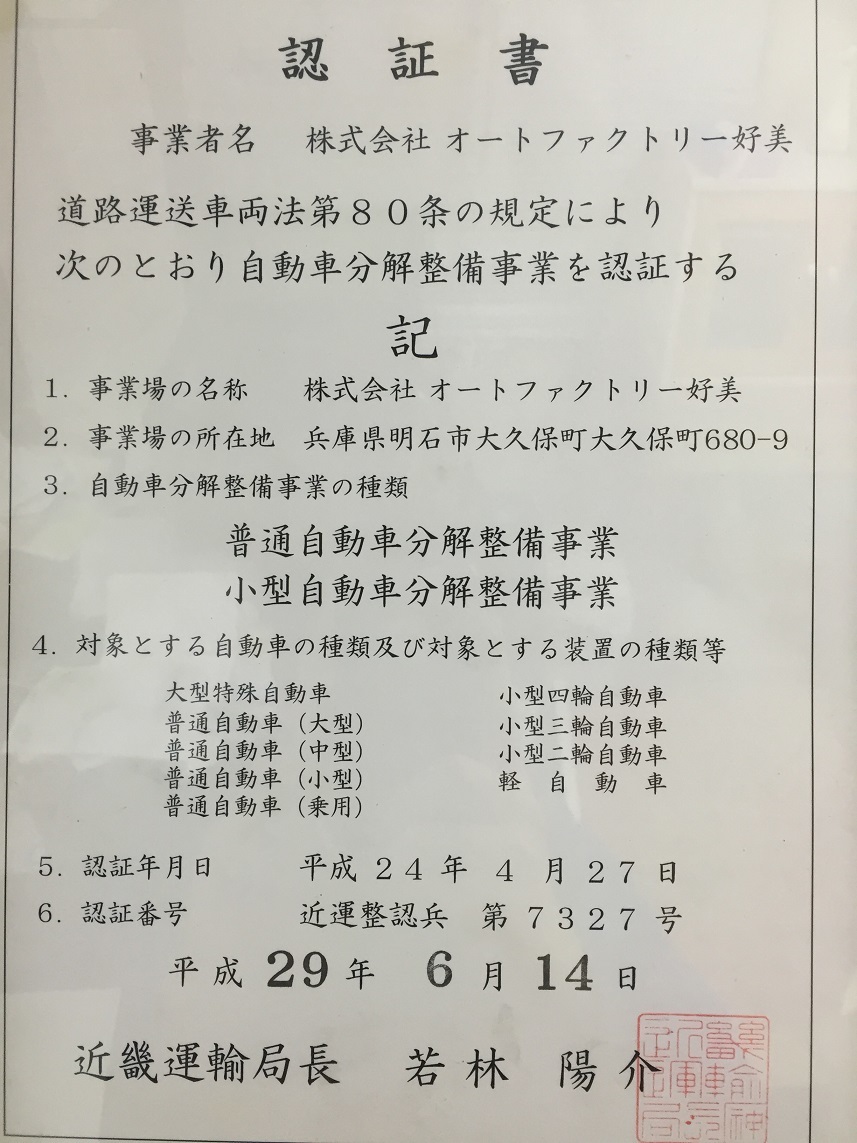 認証書
事業者名 株式会社 オートファクトリー好美
道路運送車両法第８０条の規定により
次のとおり自動車分解整備事業を認証する
記
1. 事業場の名称 株式会社 オートファクトリー好美
2. 事業場の所在地 兵庫県明石市大久保町大久保町680-9
3. 自動車分解整備事業の種類
普通自動車分解整備事業
小型自動車分解整備事業
4. 対象とする自動車の種類及び対象とする装置の種類等
大型特殊自動車
普通自動車（大型）
普通自動車（中型）
普通自動車（小型）
普通自動車（乗用）
小型四輪自動車
小型三輪自動車
小型二輪自動車
軽自動車
5. 認証年月日 平成２４年４月２７日
6. 認証番号 近運整認兵 第７３２７号
平成29年6月14日
近畿運輸局長 若林 陽介